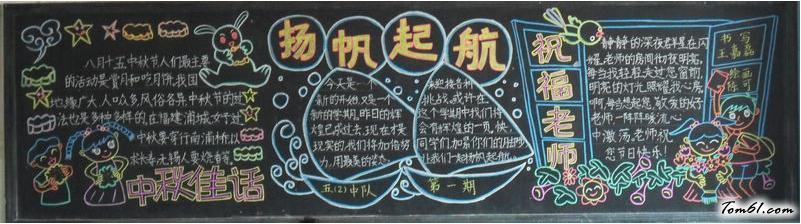 八月十五中秋节人们最主要
的活动是赏月和吃月饼，我国
地缘广大，人口众多，风俗各异，中秋节的过
法也是多种多样的，在福建浦城，女子过
中秋要穿行南浦桥，以
求长寿。无锡人要烧香斗。
中秋佳话
扬帆起航
今天是一个
新的开始，又是一个
新的学期，昨日的辉
煌已成过去，现在才是
现实的，我们将加倍努
力，用最美的姿态，
来迎接各种
挑战。或许，在
这个学期中我们将
会有辉煌的一页，快，
同学们加紧你们的脚步
让我们一起扬帆起航。
五(2)中队
第一期
祝福老师
静静的深夜群星在闪
耀，老师的房间彻夜明亮，
每当我轻轻走过您窗前，
明亮的灯光照耀我心房，
啊，每当想起您，敬爱的好
老师，一阵阵暖流心
中激荡。老师，祝
您节日快乐！
书写
王嘉磊
绘画
陈可
Tom61.com